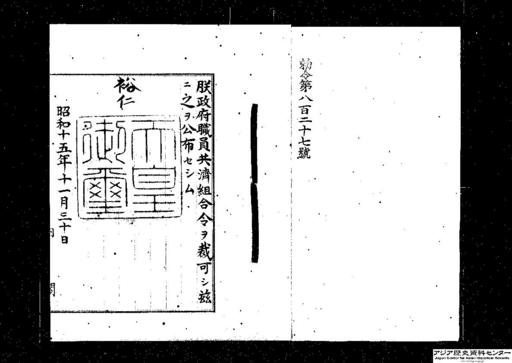 勅令第八百二十七號
朕政府職員共濟組合令ヲ裁可シ茲
ニ之ヲ公布セシム
裕仁
天皇御璽
昭和十五年十一月三十日
内
閣
アジア歴史資料センター
Japan Center for Asian Historical Records